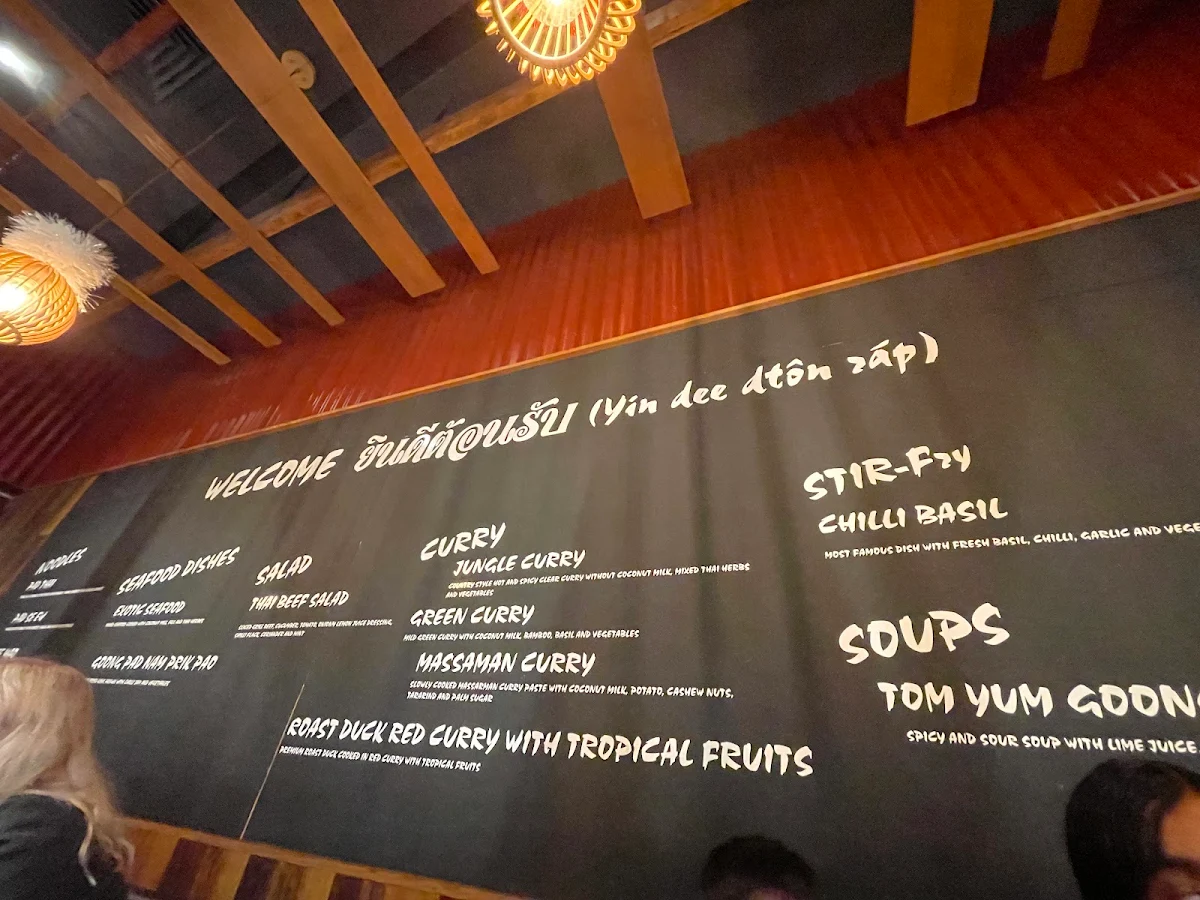 WELCOME ยินดีต้อนรับ (Yin dee dtôn ráp)
NOODLES
PAD THAI
PAD SE EW
SEAFOOD DISHES
EXOTIC SEAFOOD
GOONG PAD NAM PRIK PAO
SALAD
THAI BEEF SALAD
CURRY
JUNGLE CURRY
COUNTRY STYLE HOT AND SPICY CLEAR CURRY WITHOUT COCONUT MILK, MIXED THAI HERBS
AND VEGETABLES
GREEN CURRY
MILD GREEN CURRY WITH COCONUT MILK, BAMBOO, BASIL AND VEGETABLES
MASSAMAN CURRY
SLOWLY COOKED MASSARMAN CURRY PASTE WITH COCONUT MILK, POTATO, CASHEW NUTS,
TARARIND AND PALM SUGAR
ROAST DUCK RED CURRY WITH TROPICAL FRUITS
PREMIUM ROAST DUCK COOKED IN RED CURRY WITH TROPICAL FRUITS
STIR-Fry
CHILLI BASIL
MOST FAMOUS DISH WITH FRESH BASIL, CHILLI, GARLIC AND VEGE
SOUPS
TOM YUM GOON
SPICY AND SOUR SOUP WITH LIME JUICE